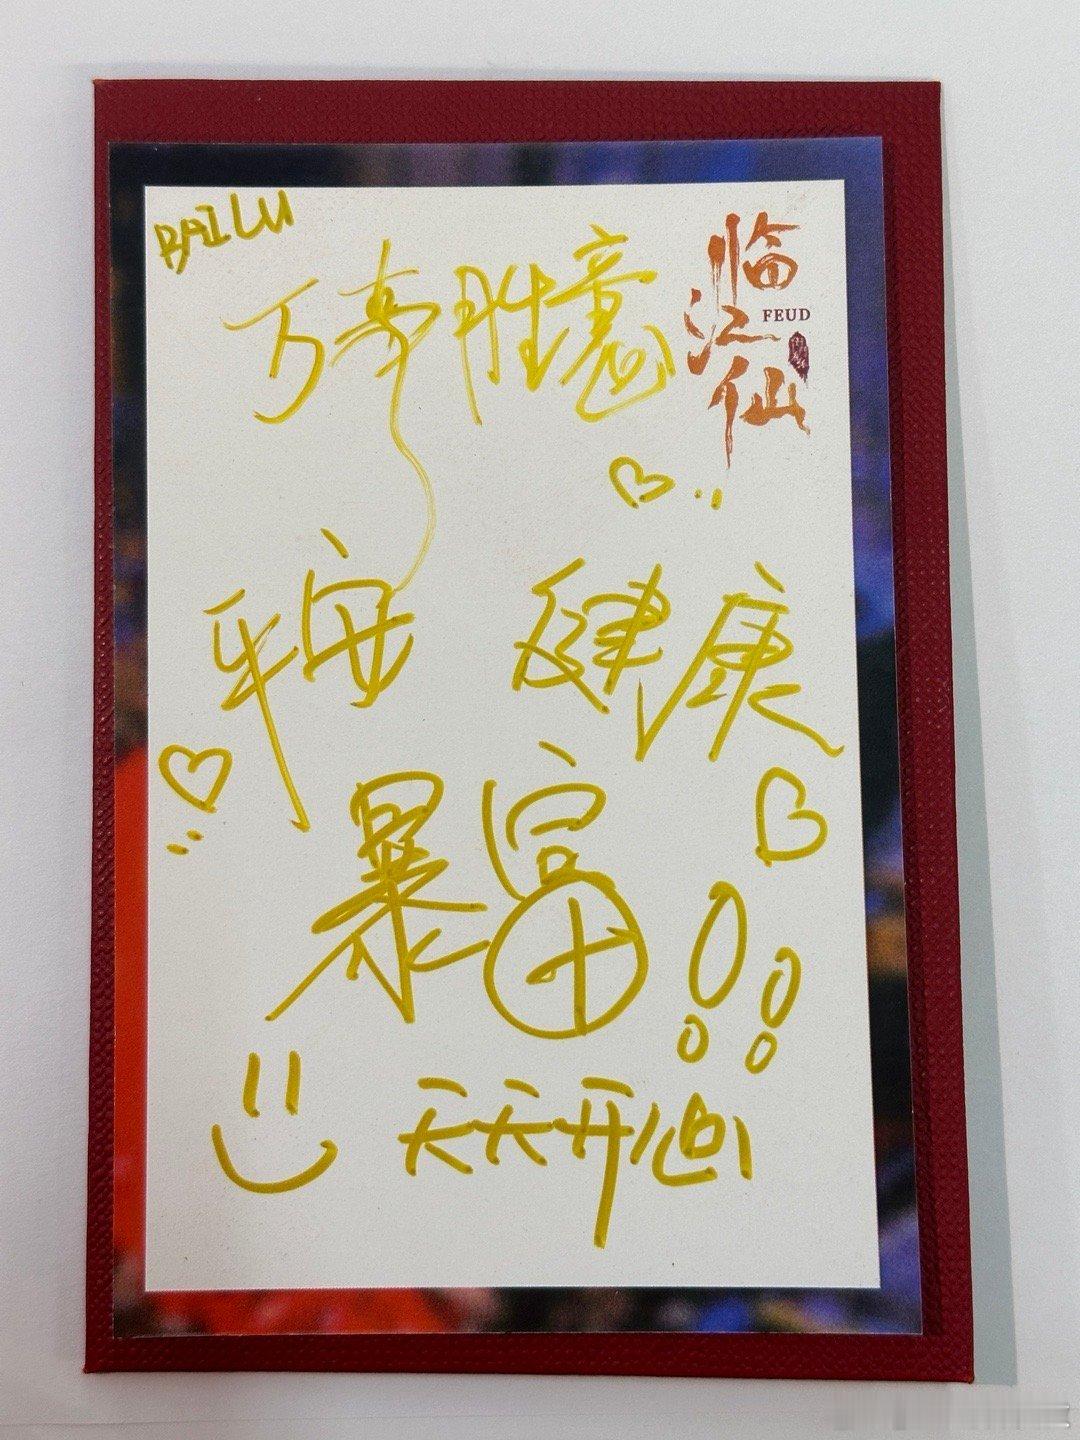 BAILU
万事胜意
临江仙
FEUD
平安 健康
暴富!!
天天开心